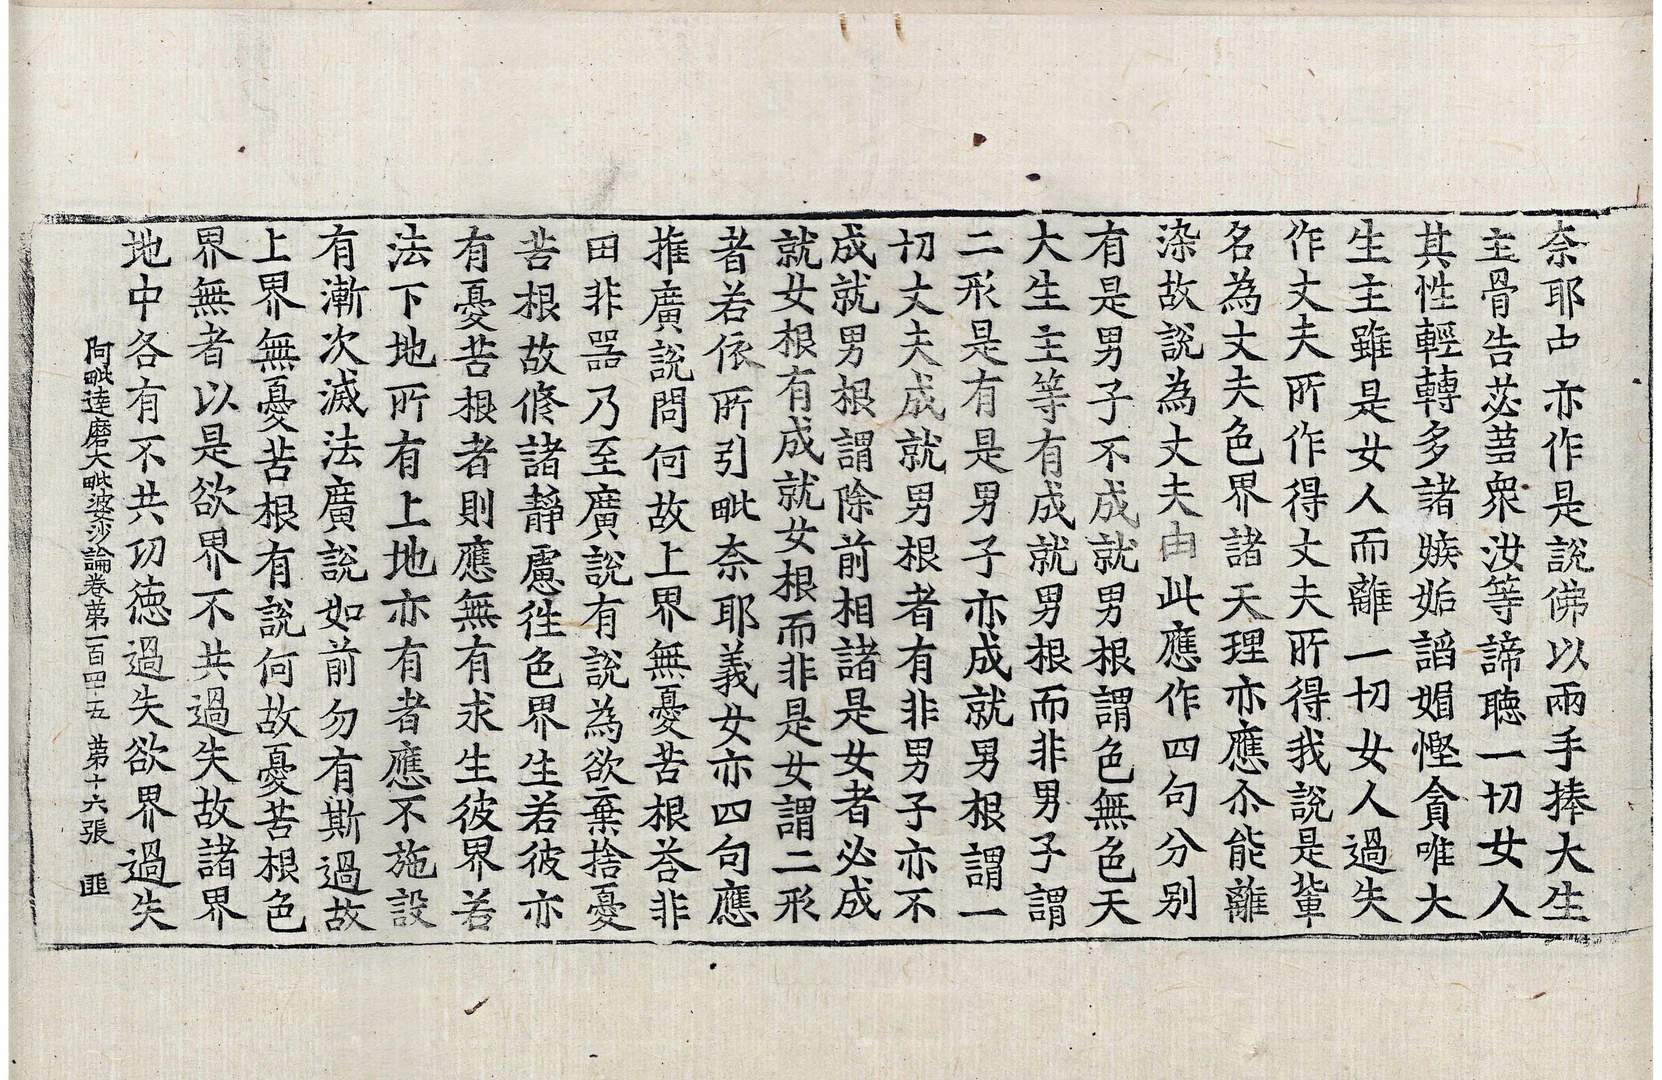 奈耶中亦作是說佛以兩手捧大生
主骨告苾芻衆汝等諦聽一切女人
其性輕轉多諸嫉妬諂媚慳貪唯大
生主雖是女人而離一切女人過失
作丈夫所作得丈夫所得我說是軰
名為丈夫色界諸天理亦應尒能離
染故說為丈夫由此應作四句分别
有是男子不成就男根謂色無色天
大生主等有成就男根而非男子謂
二形是有是男子亦成就男根謂一
切丈夫成就男根者有非男子亦不
成就男根謂除前相諸是女者必成
就女根有成就女根而非是女謂二形
者若依所引毗奈耶義女亦四句應
推廣說問何故上界無憂苦根荅非
田非器乃至廣說有說為欲棄捨憂
苦根故修諸靜慮徃色界生若彼亦
有憂苦根者則應無有求生彼界若
法下地所有上地亦有者應不施設
有漸次滅法廣說如前勿有斯過故
上界無憂苦根有說何故憂苦根色
界無者以是欲界不共過失故諸界
地中各有不共㓛德過失欲界過失
阿毗達磨大毗婆沙論卷苐一百四十五 苐十六張 匪